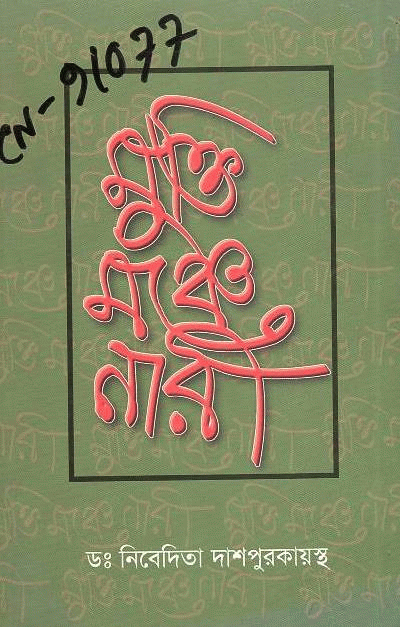 CN-91077
মুক্তি
মঞ্চে
নারী
ডঃ নিবেদিতা দাশপুরকায়স্থ